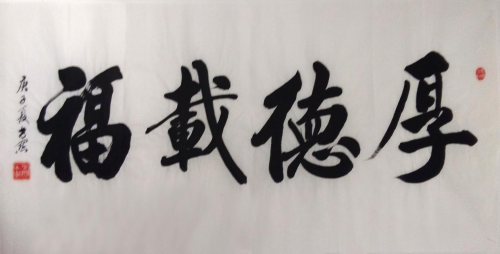 厚德載福
庚子夏